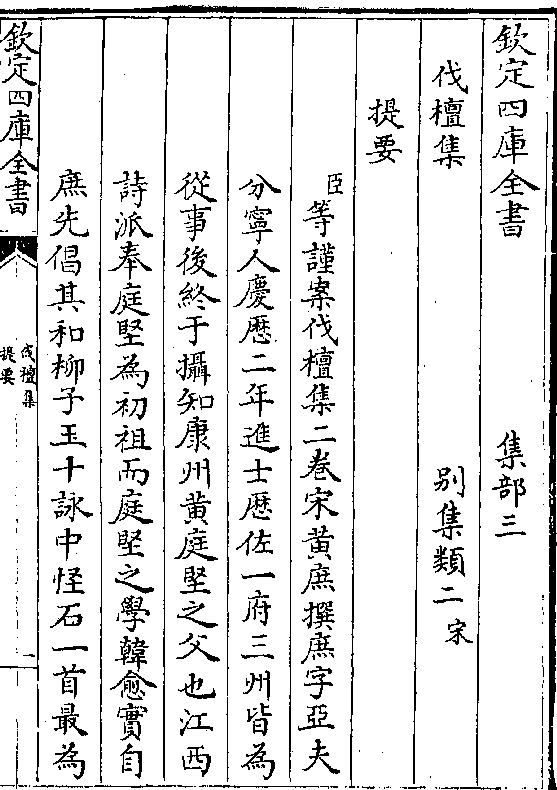 欽定四庫全書 集部三
伐檀集 別集類二宋
提要
臣等謹案伐檀集二卷宋黄庶撰庶字亞夫
分寧人慶厯二年進士厯佐一府三州皆為
從事後終于攝知康州黄庭堅之父也江西
詩派奉庭堅為初祖而庭堅之學韓愈實自
庶先倡其和柳子玉十詠中怪石一首最為
欽定四庫全書
伐檀集
提要
一